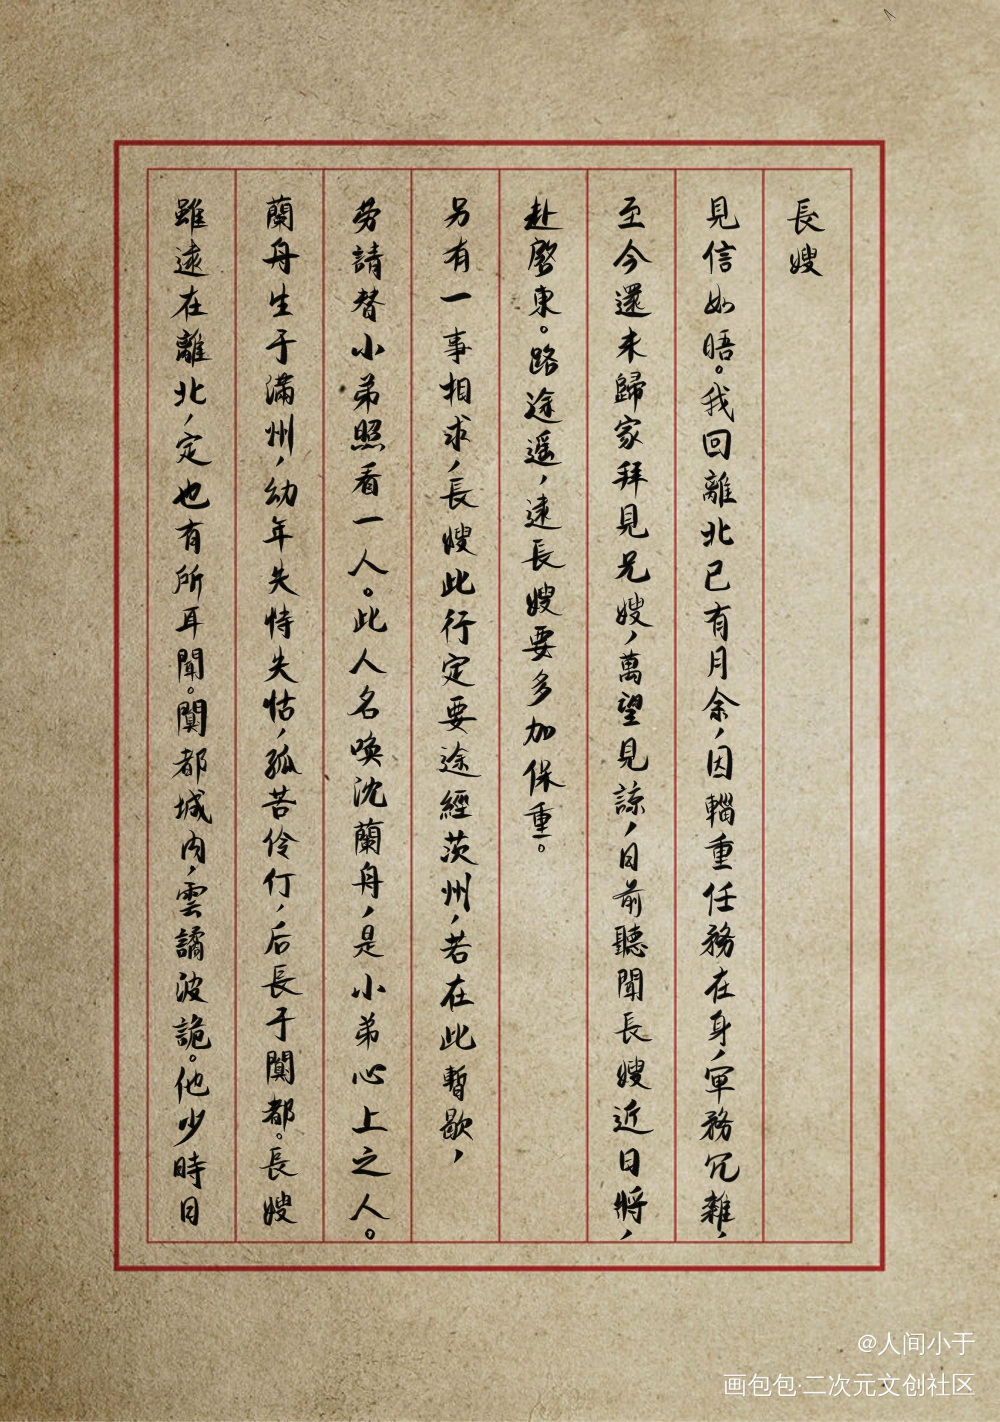 長嫂
見信如晤。我回離北已有月余，因輜重任務在身，軍務冗雜，
至今還未歸家拜見兄嫂，萬望見諒，日前聽聞長嫂近日將，
赴啓東。路途遥，遠長嫂要多加保重。
另有一事相求，長嫂此行定要途經茨州，若在此暫歇，
勞請替小弟照看一人。此人名喚沈蘭舟，是小弟心上之人。
蘭舟生于滿州，幼年失恃失怙，孤苦伶仃，后長于闃都。長嫂
雖遠在離北，定也有所耳聞。闃都城内，雲譎波詭。他少時日
@人间小于
画包包·二次元文创社区